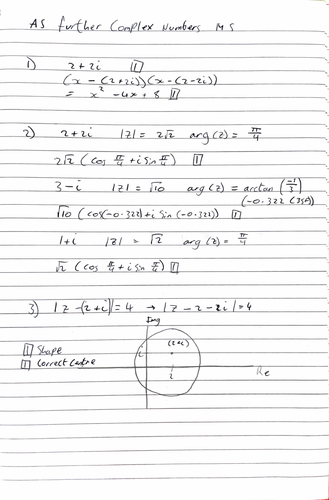 AS Further Complex Numbers MS
1) 2+2i [1]
(x - (2+2i))(x - (2-2i))
= x² - 4x + 8 [1]
2) 2+2i |z| = 2√2 arg(z) = π/4
2√2 (cos π/4 + i sin π/4) [1]
3-i |z| = √10 arg(z) = arctan(-1/3)
-0.322 (3sf)
√10 (cos(-0.322) + i sin(-0.322)) [1]
1+i |z| = √2 arg(z) = π/4
√2 (cos π/4 + i sin π/4) [1]
3) |z-(2+i)| = 4 → |z-2-2i| = 4
Img
[1] Shape
[1] Correct Centre
i
(2+i)
2
Re